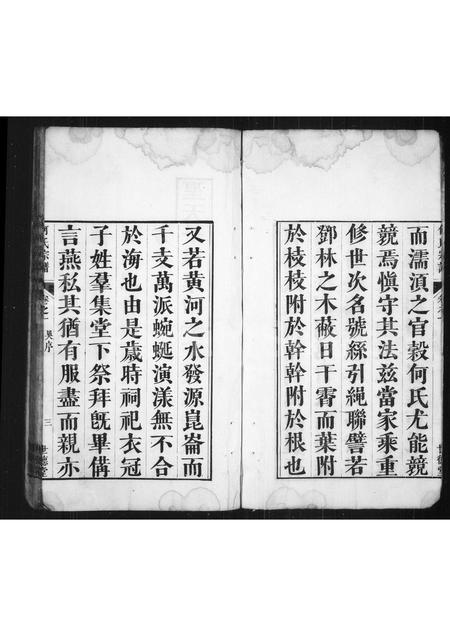 而濡湏之官榖何氏尤能競
競焉愼守其法茲當家乘重
修世次名號絲引繩聯譬若
鄧林之木蔽日干霄而葉附
於枝枝附於幹幹附於根也
又若黃河之水發源崑崙而
千支萬派蜿蜒演漾無不合
於海也由是歲時祠祀衣冠
子姓羣集堂下祭拜旣畢備
言燕私其猶有服盡而親亦
何氏宗譜
卷之一
吳序
三
世德堂